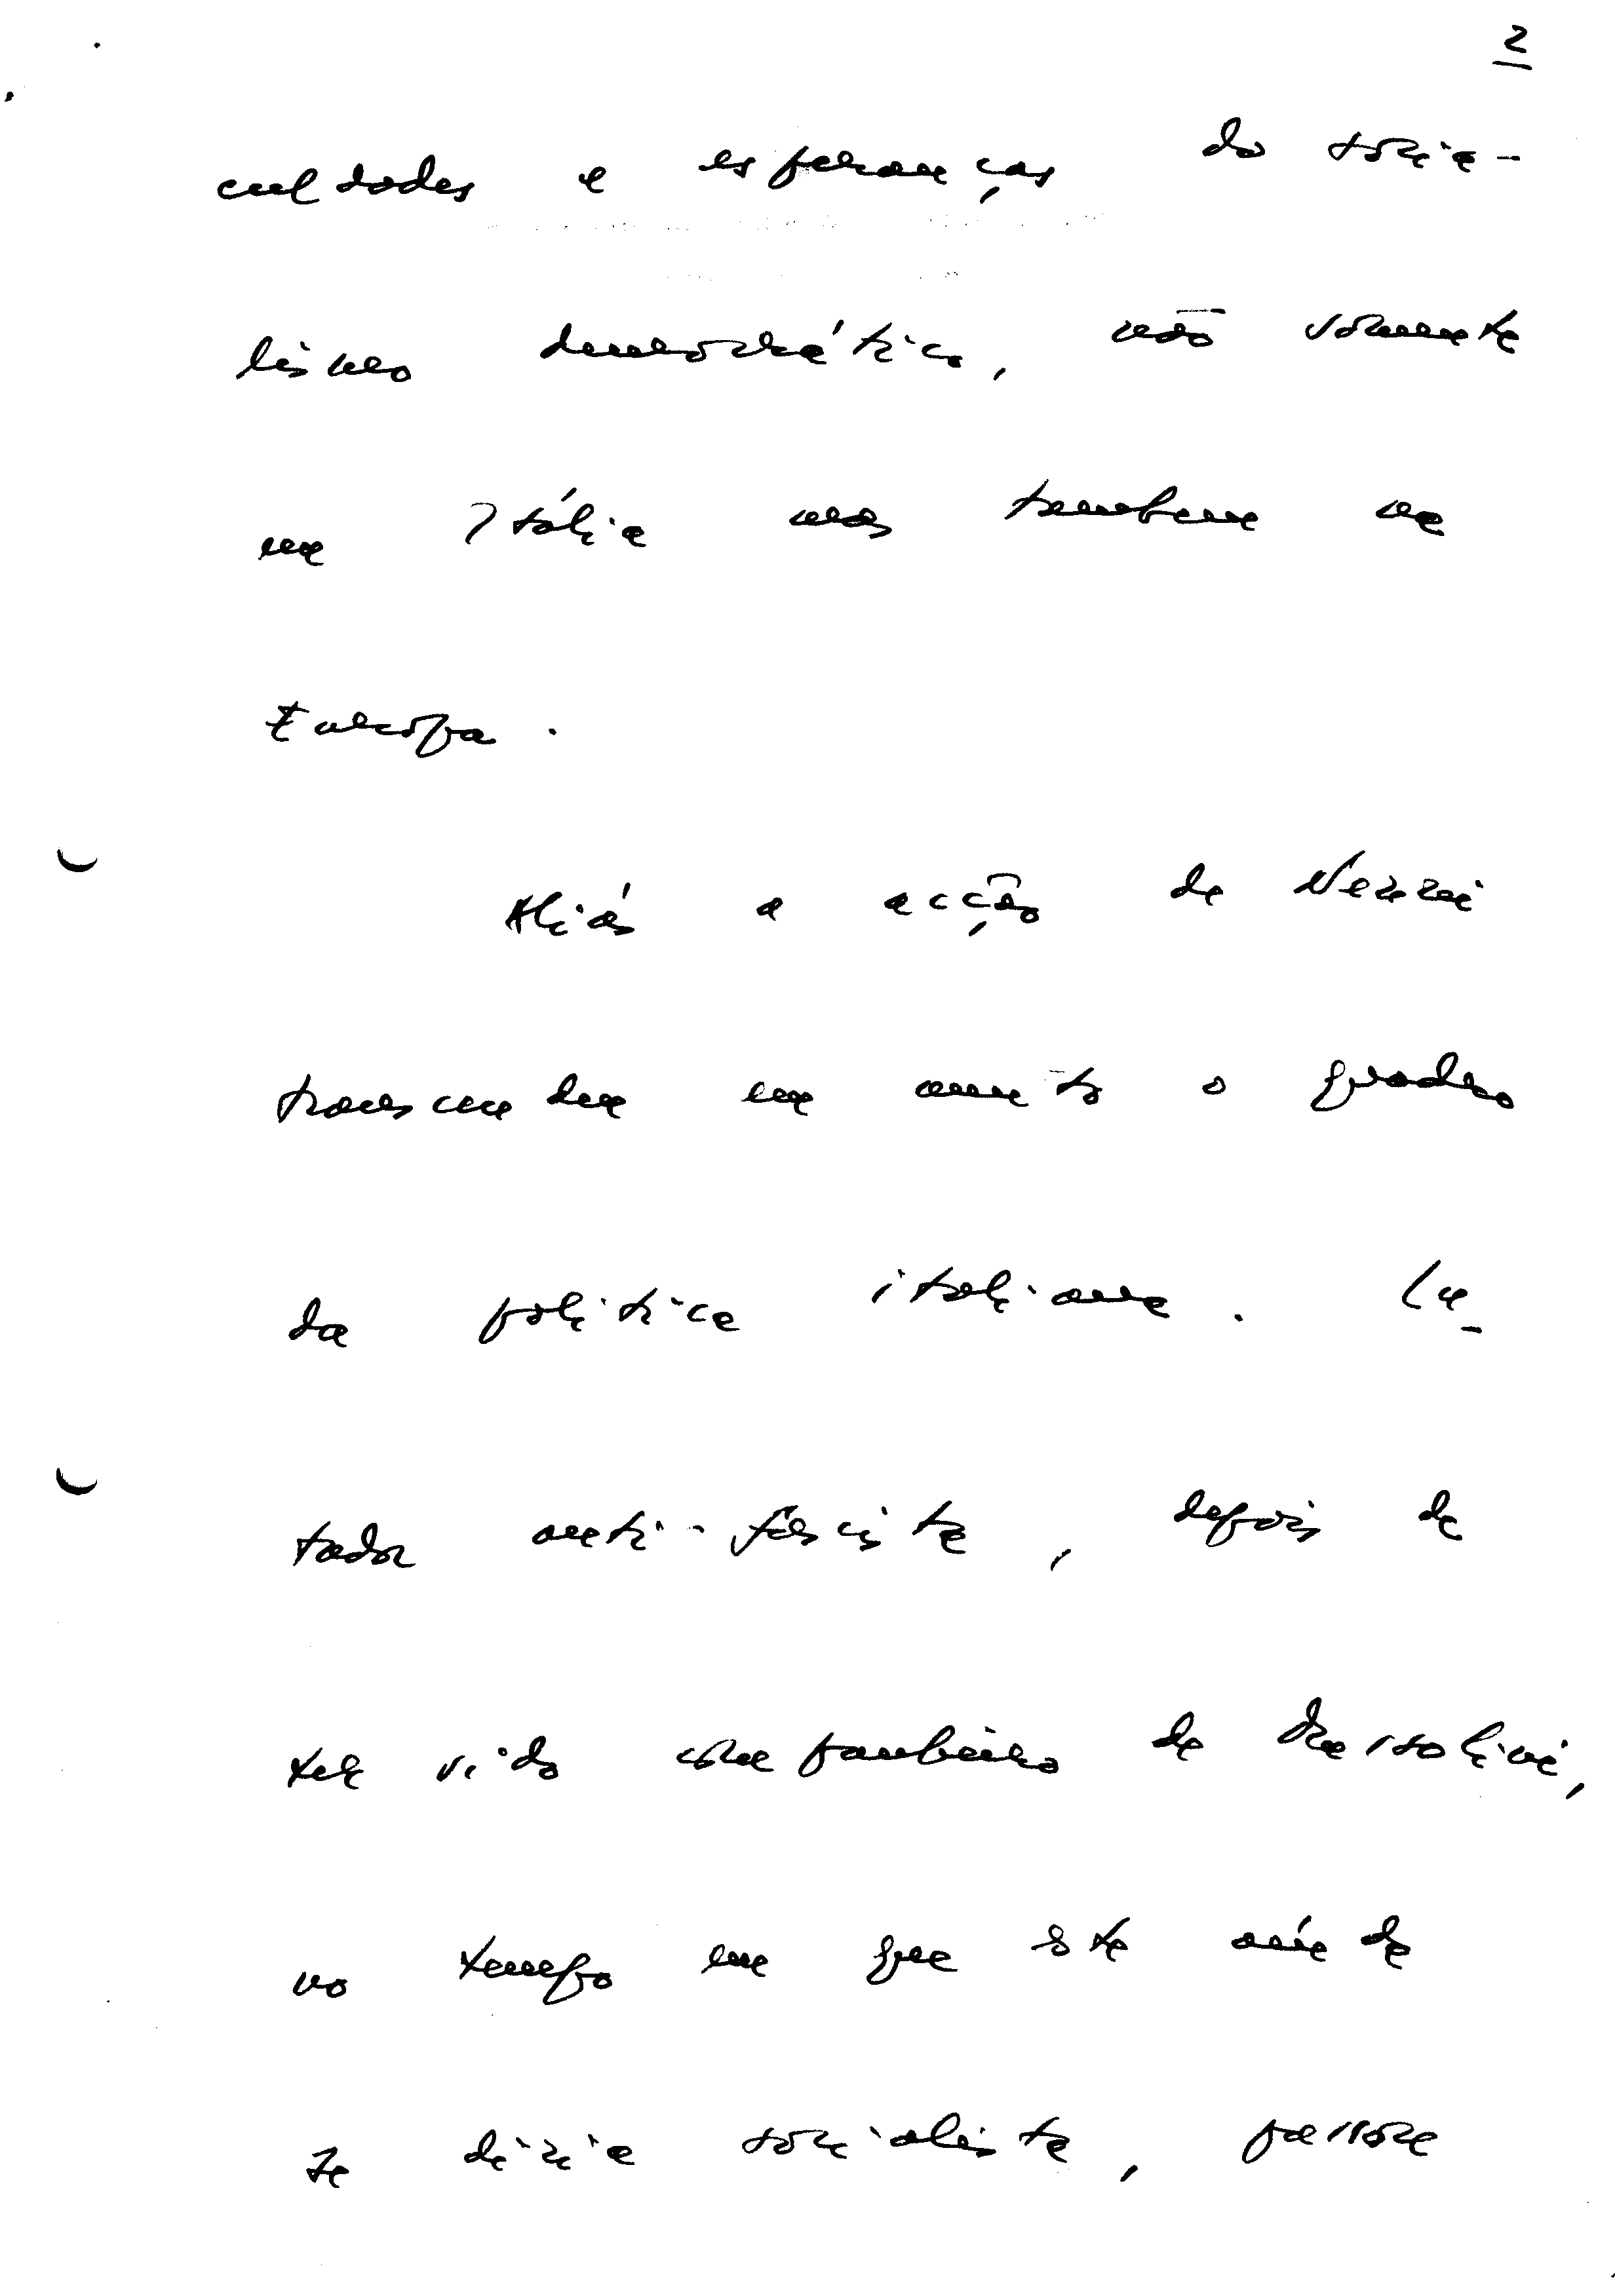 2
culdades e esperanças do socia-
lismo democrático, não somente
na Itália mas tambem na
Europa.
Aliás a acção de Nenni
transcendeu em muito o quadro
da politica italiana. Lu-
tador anti-fascista, depois de
ter sido companheiro de Mussolini,
no tempo em que este ainda
se dizia socialista, passou